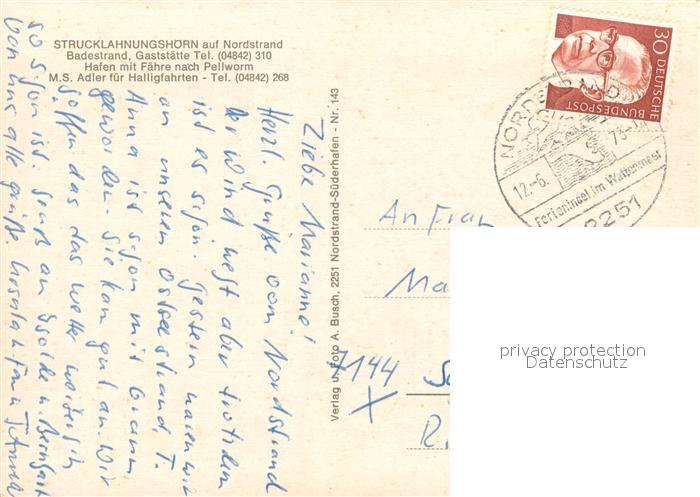 STRUCKLAHNUNGSHÖRN auf Nordstrand
Badestrand, Gaststätte Tel. (04842) 310
Hafen mit Fähre nach Pellworm
M.S. Adler für Halligfahrten - Tel. (04842) 268
Liebe Marianne!
Herzl. Grüße vom Nordstrand
der Wind weht aber trotzdem
ist es schön. Gestern waren wir
an unseren Ostseestrand. T.
Anna ist schon mit braun
geworden. Sie kam gut an. Wir
hoffen das das Wetter weiterhin
so schön ist. Gruß an Isolde u.
von uns alle grüße
Verlag u. Foto A. Busch, 2251 Nordstrand-Süderhafen - Nr. 143
30 DEUTSCHE BUNDESPOST
NORDSTRAND
12.-6. 73-
Ferieninsel im Wattenmeer
2251
An Frau
Ma
7144
X
R
privacy protection
Datenschutz